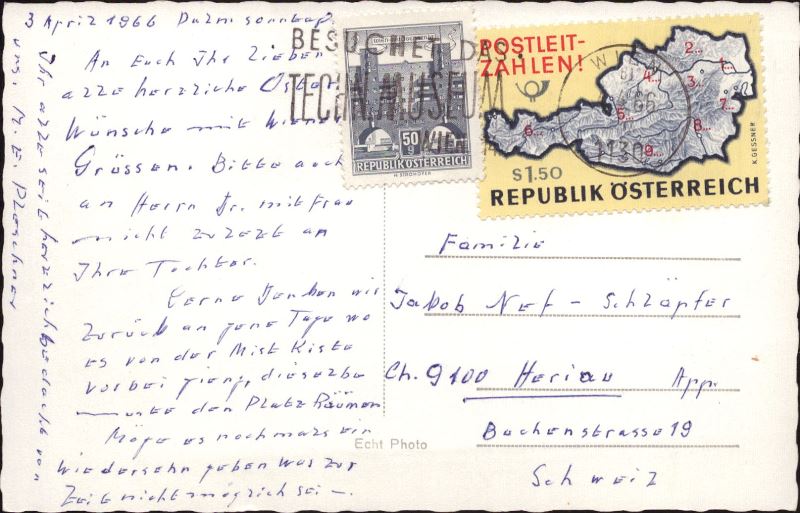 3 April 1966 Palmsonntag.
An Euch Ihr Lieben
alle herzliche Oster
Wünsche mit Wiener
Grüssen. Bitte auch
an Herrn Dr. mit Frau
nicht zuletzt an
Ihre Tochter.
Gerne denken wir
zurück an jene Tage wo
es von der Mist Kiste
vorbei gieng, dieselbe
unte den Platz Räumen
Möge es nochmals ein
Wiedersehn geben was zur
Zeit nicht möglich sei –
Ihr alle seit herzlich bedacht von
uns. M. E. Ploschner
BESUCHET DAS
TECHN. MUSEUM
WIEN
50 g
REPUBLIK ÖSTERREICH
H. STROHOFER
POSTLEIT-
ZAHLEN!
1...
2...
3...
4...
5...
6...
7...
8...
9...
WIEN
66
1130
S 1.50
K. GESSNER
REPUBLIK ÖSTERREICH
Familie
Jakob Nef – Schläpfer
Ch. 9100 Herisau App.
Buchenstrasse 19
Schweiz
Echt Photo